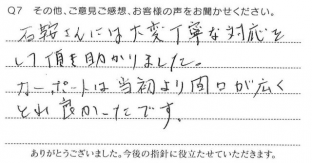 Q7 その他、ご意見ご感想、お客様の声をお聞かせください。
石鞍さんには大変丁寧な対応を
して頂き助かりました。
カーポートは当初より間口が広く
とれ良かったです。
ありがとうございました。今後の指針に役立たせていただきます。